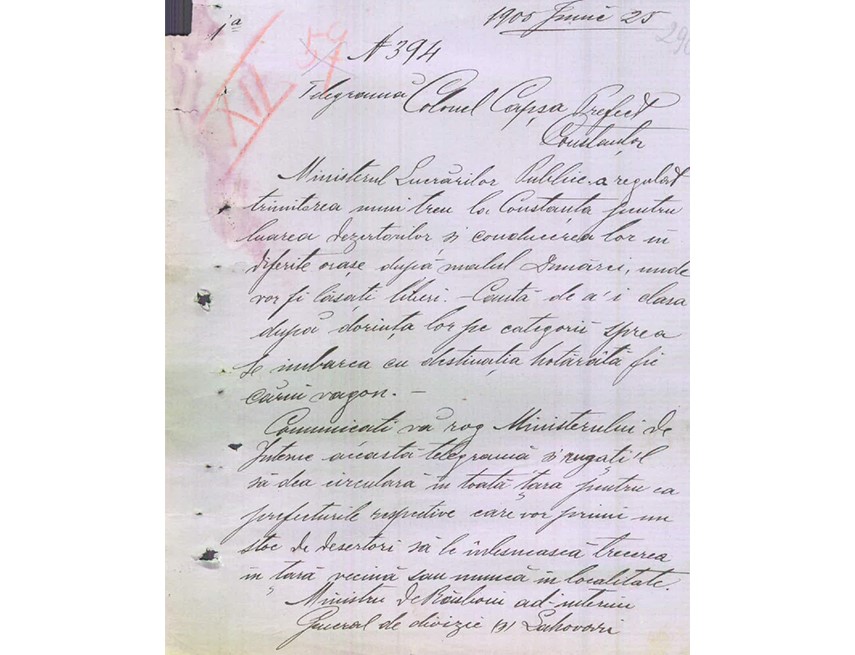 1905 Iunie 25
1ª
290
N 394
XII 59
Telegramă Colonel Capșa Prefect
Constanța
Ministerul Lucrărilor Publice a regulat
trimiterea unui tren la Constanța pentru
luarea dezertorilor si conducerea lor in
diferite orașe după malul Dunărei, unde
vor fi lăsați liberi. – Caută de a'i clasa
după dorința lor pe categorii spre a
se imbarca cu destinația hotărâtă fie
cărui vagon. –
Comunicati vă rog Ministerului de
Interne aceasta telegramă si rugati'l
să dea circulară in toată țara pentru ca
prefecturile respective care vor primi un
stoc de desertori să le înlesnească trecerea
in țară vecină sau muncă in localitate.
Ministru de Răsboiu ad-interim
General de divizie (s) Lahovari